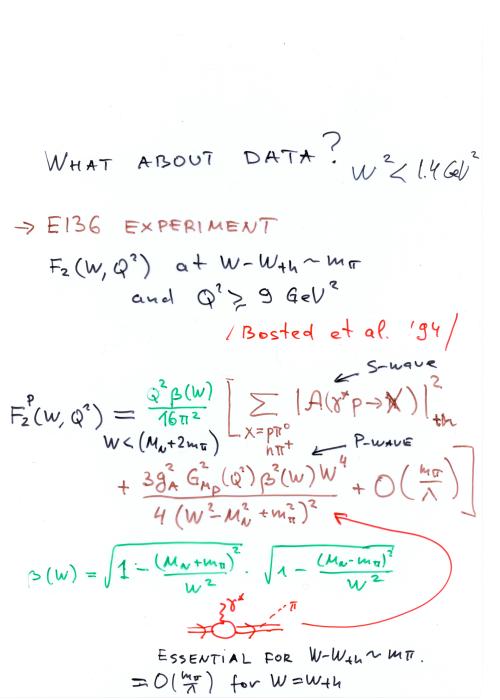 WHAT ABOUT DATA? W² < 1.4 GeV²
→ E136 EXPERIMENT
F₂(W, Q²) at W-W_th ~ m_π
and Q² ≥ 9 GeV²
/Bosted et al. '94/
← S-WAVE
F₂^p(W, Q²) = Q²β(W)/16π² [ Σ_{X=pπ⁰, nπ⁺} |A(γ*p→X)|²_th
W<(M_N+2m_π)
← P-WAVE
+ 3g_A² G²_{Mp}(Q²)β²(W)W⁴ / 4(W²-M_N²+m_π²)² + O(m_π/Λ) ]
β(W) = √(1-(M_N+m_π)²/W²) · √(1-(M_N-m_π)²/W²)
γ* π
ESSENTIAL FOR W-W_th ~ m_π.
= O(m_π/Λ) for W=W_th